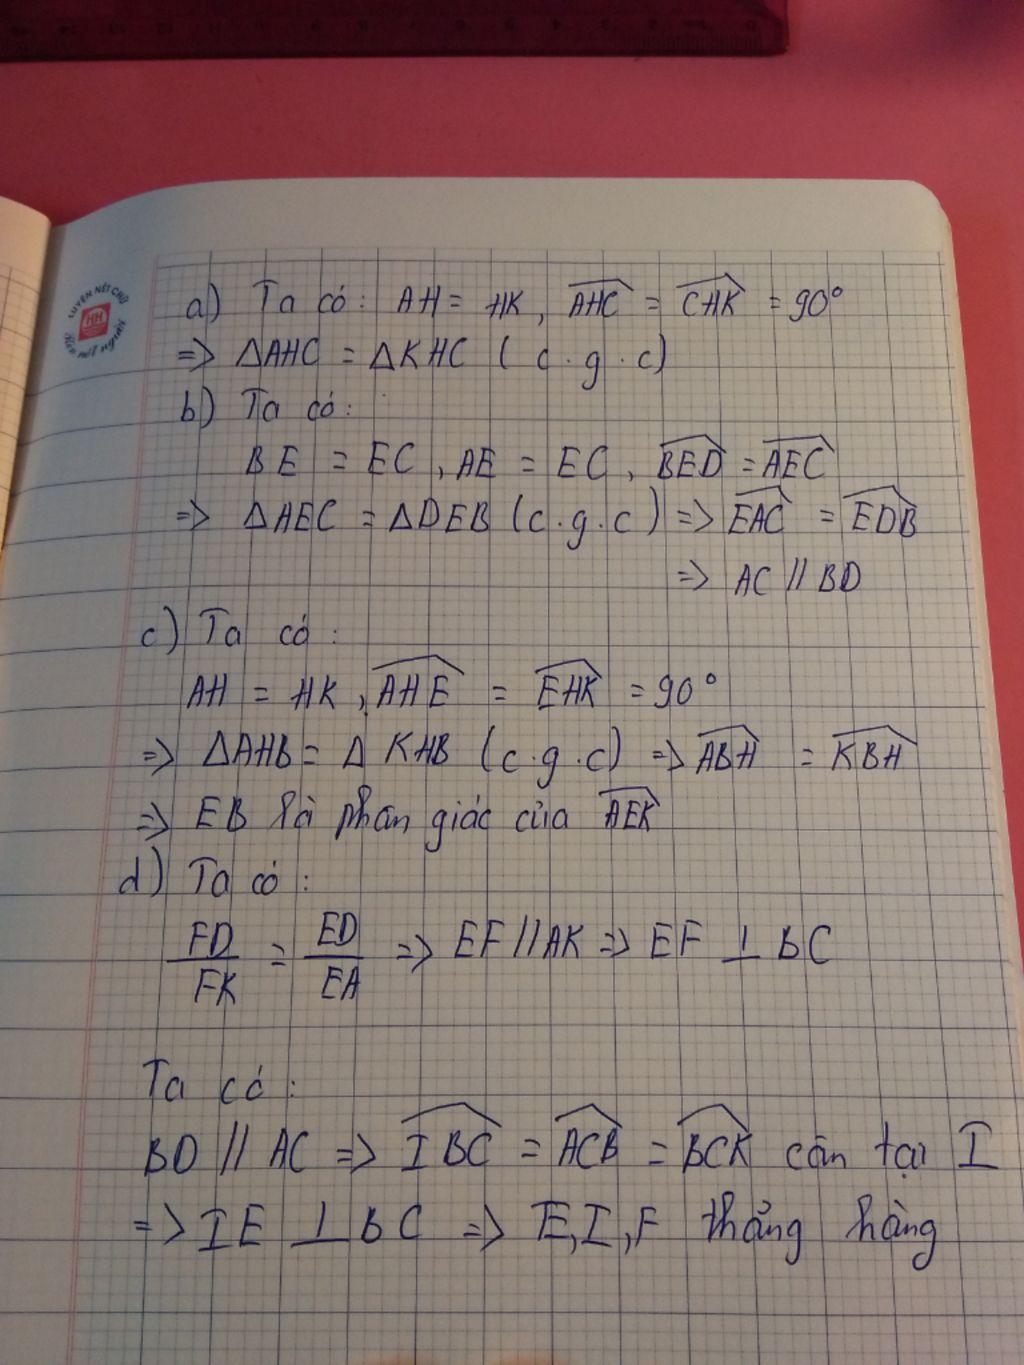 LUYỆN NÉT CHỮ
HH
Rèn nết người
a) Ta có: AH = HK, \widehat{AHC} = \widehat{CHK} = 90°
=> ΔAHC = ΔKHC (c.g.c)
b) Ta có:
BE = EC, AE = EC, \widehat{BED} = \widehat{AEC}
=> ΔAEC = ΔDEB (c.g.c) => \widehat{EAC} = \widehat{EDB}
=> AC // BD
c) Ta có:
AH = HK, \widehat{AHE} = \widehat{EHK} = 90°
=> ΔAHB = Δ KHB (c.g.c) => \widehat{ABH} = \widehat{KBH}
=> EB là phân giác của \widehat{AEK}
d) Ta có:
FD/FK = ED/EA => EF // AK => EF ⊥ BC
Ta có:
BD // AC => \widehat{IBC} = \widehat{ACB} = \widehat{BCK} cân tại I
=> IE ⊥ BC => E, I, F thẳng hàng